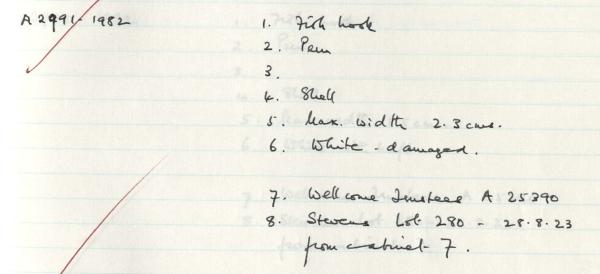 A 2991-1982
1. Fish hook
2. Peru
3.
4. Shell
5. Max. width 2.3 cms.
6. White - damaged.
7. Wellcome Trustees A 25390
8. Stevens Lot 280 - 28.8.23
from cabinet 7.